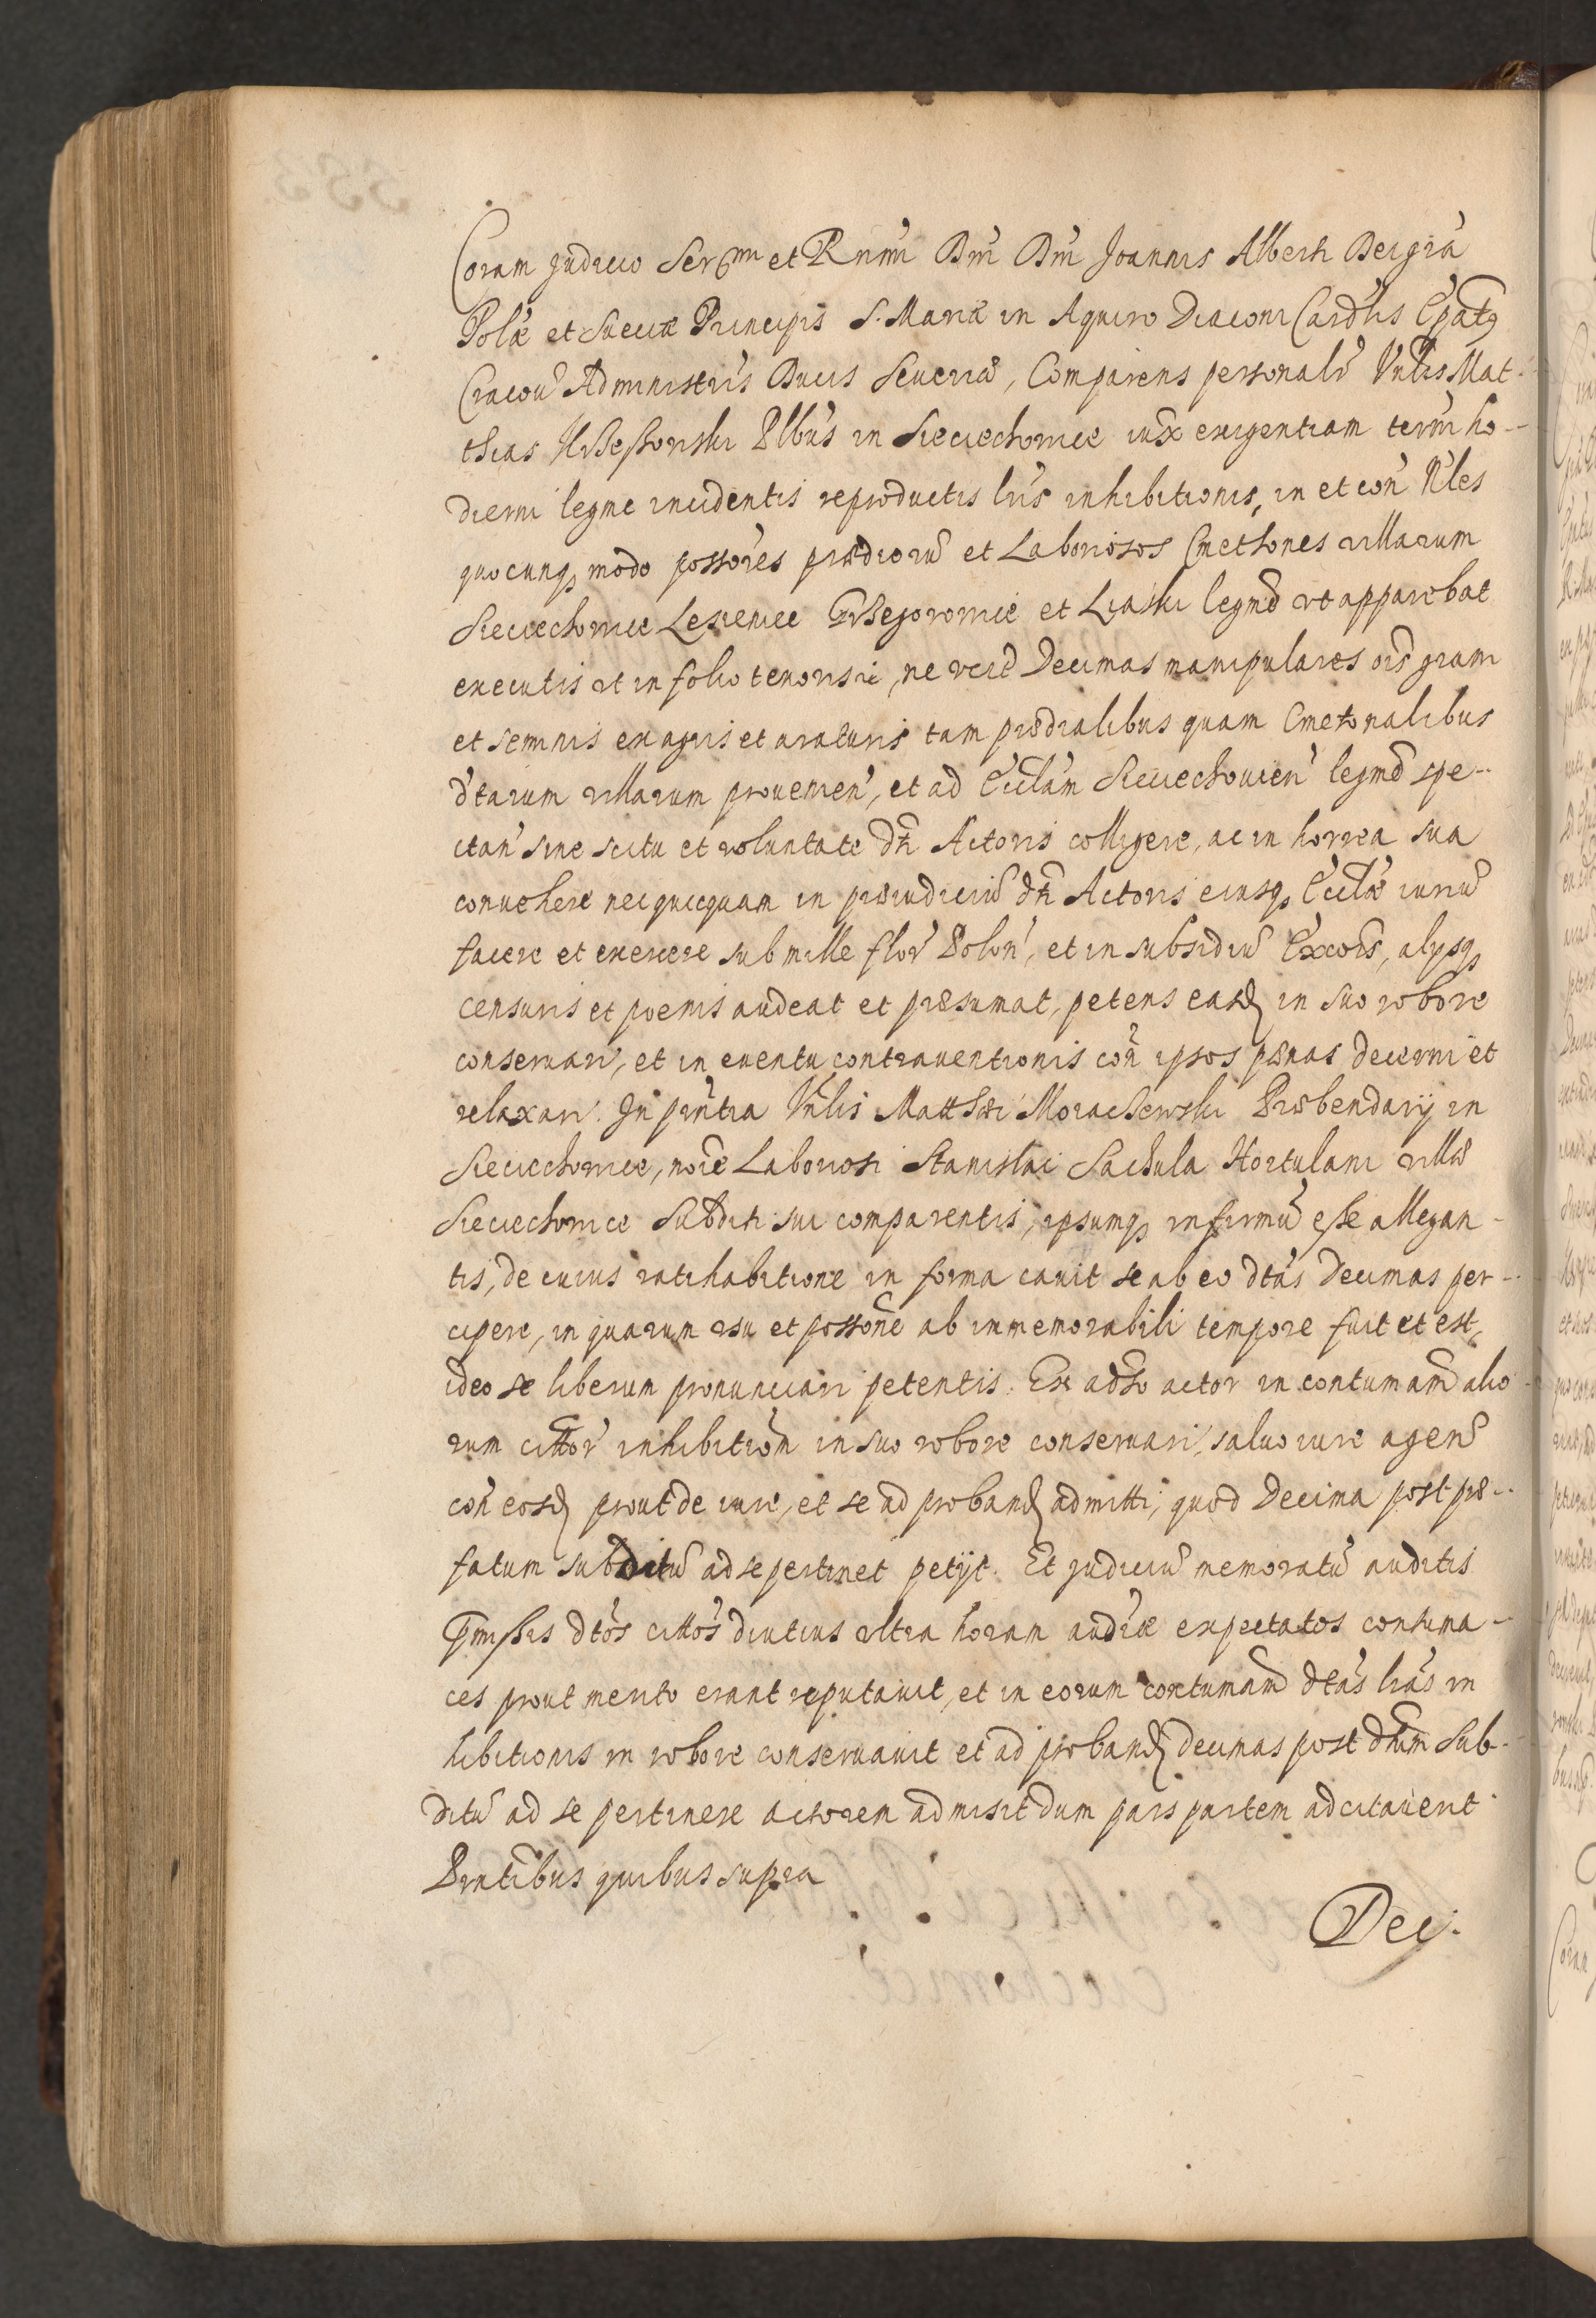 Coram Judicio Ser.mi et Rn̄mi Dn̄i Dn̄i Joannis Alberti Dei grã
Polæ et Sueciæ Principis S. Mariæ in Aquiro Diaconi Cardlis Epatq
Cracou Administris Ducis Seueriæ, Comparens personalr̄ Vnlis Mat-
thias Plbūs in Sieciechowice iuxͣ exigentiam termī ho-
dierni legme incidentis reproductis lrīs inhibitionis, in et con Nles
quocunqȝ modo possores prædiorū et Laboriosos Cmethones villarum
Sieciechowice Lesieniec Grzegorzowice et Liaski legmē vt apparebat
executis vt in folio tenoris ne Decimas manipulares grani
et seminis ex agris et araturis tam prædialibus quam Cmetonalibus
dtarum villarum prouenien, et ad Ecclam Sieciechouien legmē spe-
ctan sine scitu et voluntate dti Actoris colligere, ac in horrea sua
conuehere nec quicquam in præiudiciū dti Actoris eiusqȝ Ecclæ iuriū
facere et exercere sub mille flor Polon, et in subsidiū Excois, alysqȝ
censuris et poenis audeat et præsumat, petens easd in suo robore
conseruari, et in euentu contrauentionis con ipsos pænas decerni et
relaxari. In pntia Vnlis Matthæi Moraczewski Præbendarij in
Sieciechowice, noīe Laboriosi Stanislai Sachula Hortulani villæ
Sieciechowice Subditi sui comparentis, ipsumqȝ infirmū esse allegan-
tis, de cuius ratihabitione in forma cauit se ab eo dtas Decimas per-
cipere, in quarum vsu et possone ab immemorabili tempore fuit et est,
ideo se liberum pronunciari petentis. Ex aduso actor in contumam alio
rum cittor inhibition in suo robore conseruari, saluo iure agen
con eosd prout de iure, et se ad proband admitti, quod Decima post præ-
fatum subditū ad se pertinet petijt. Et Judiciū memoratū auditis
pmissis dtos cittos diutius vltra horam audiæ expectatos contuma-
ces prout merito erant reputauit, et in eorum contumam dtas lras in
hibitionis in robore conseruauit et ad proband decimas post dtum Sub-
ditū ad se pertinere actorem admisit dum pars partem adcitauerit
Pntibus quibus supra
Dec: